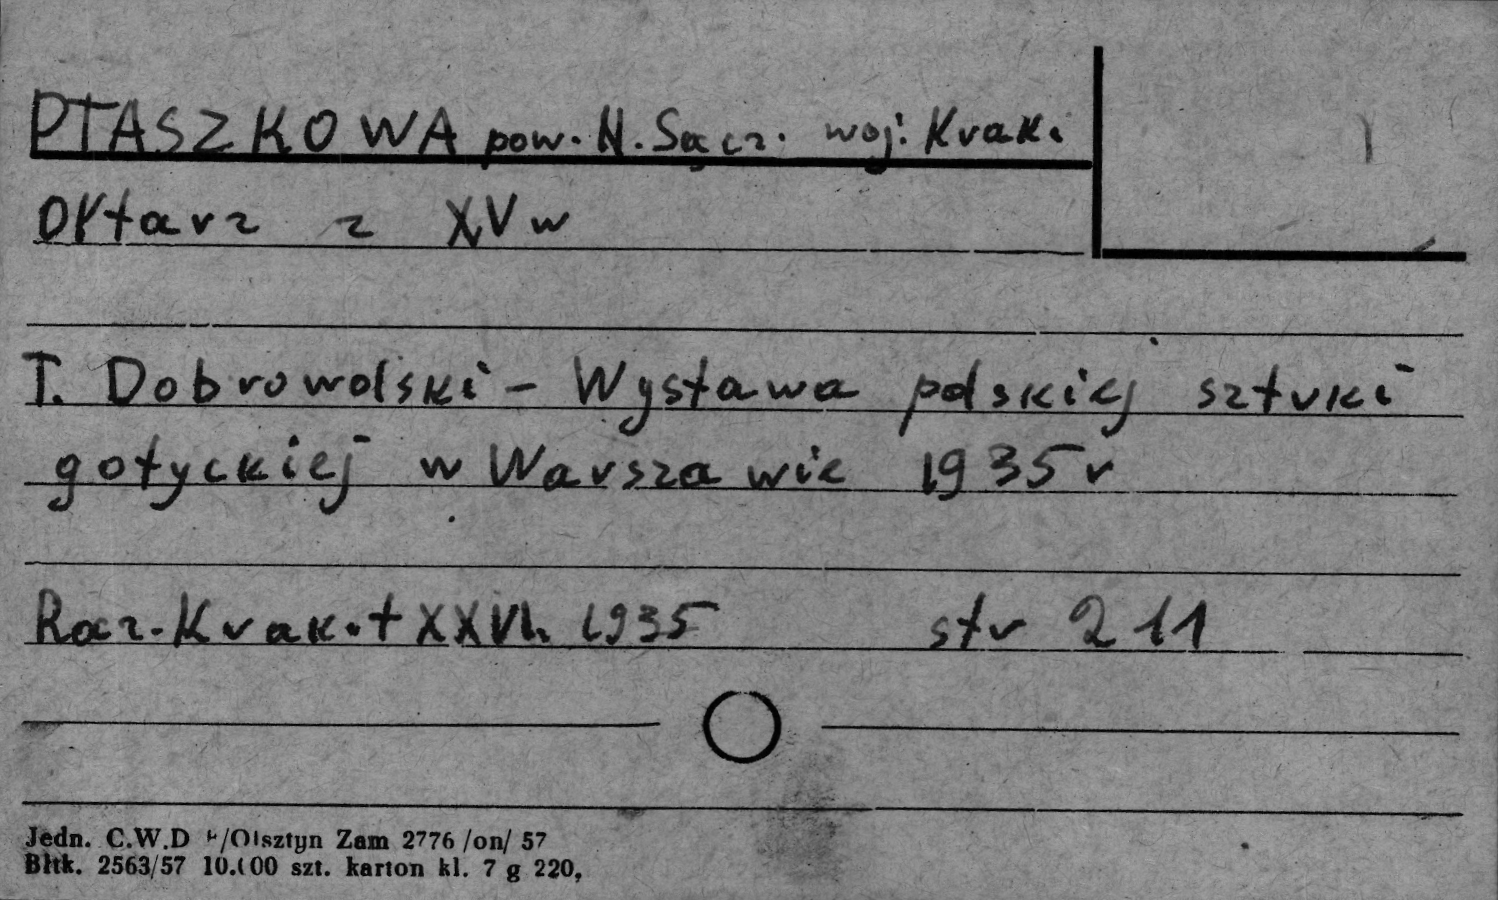 PTASZKOWA pow. N. Sącz. woj. Krak.
Ołtarz z XV w
T. Dobrowolski - Wystawa polskiej sztuki
gotyckiej w Warszawie 1935 r
Rocz. Krak. t XXVI. 1935 str 211
Jedn. C.W.D /Olsztyn Zam 2776 /on/ 57
Błtk. 2563/57 10.000 szt. karton kl. 7 g 220,